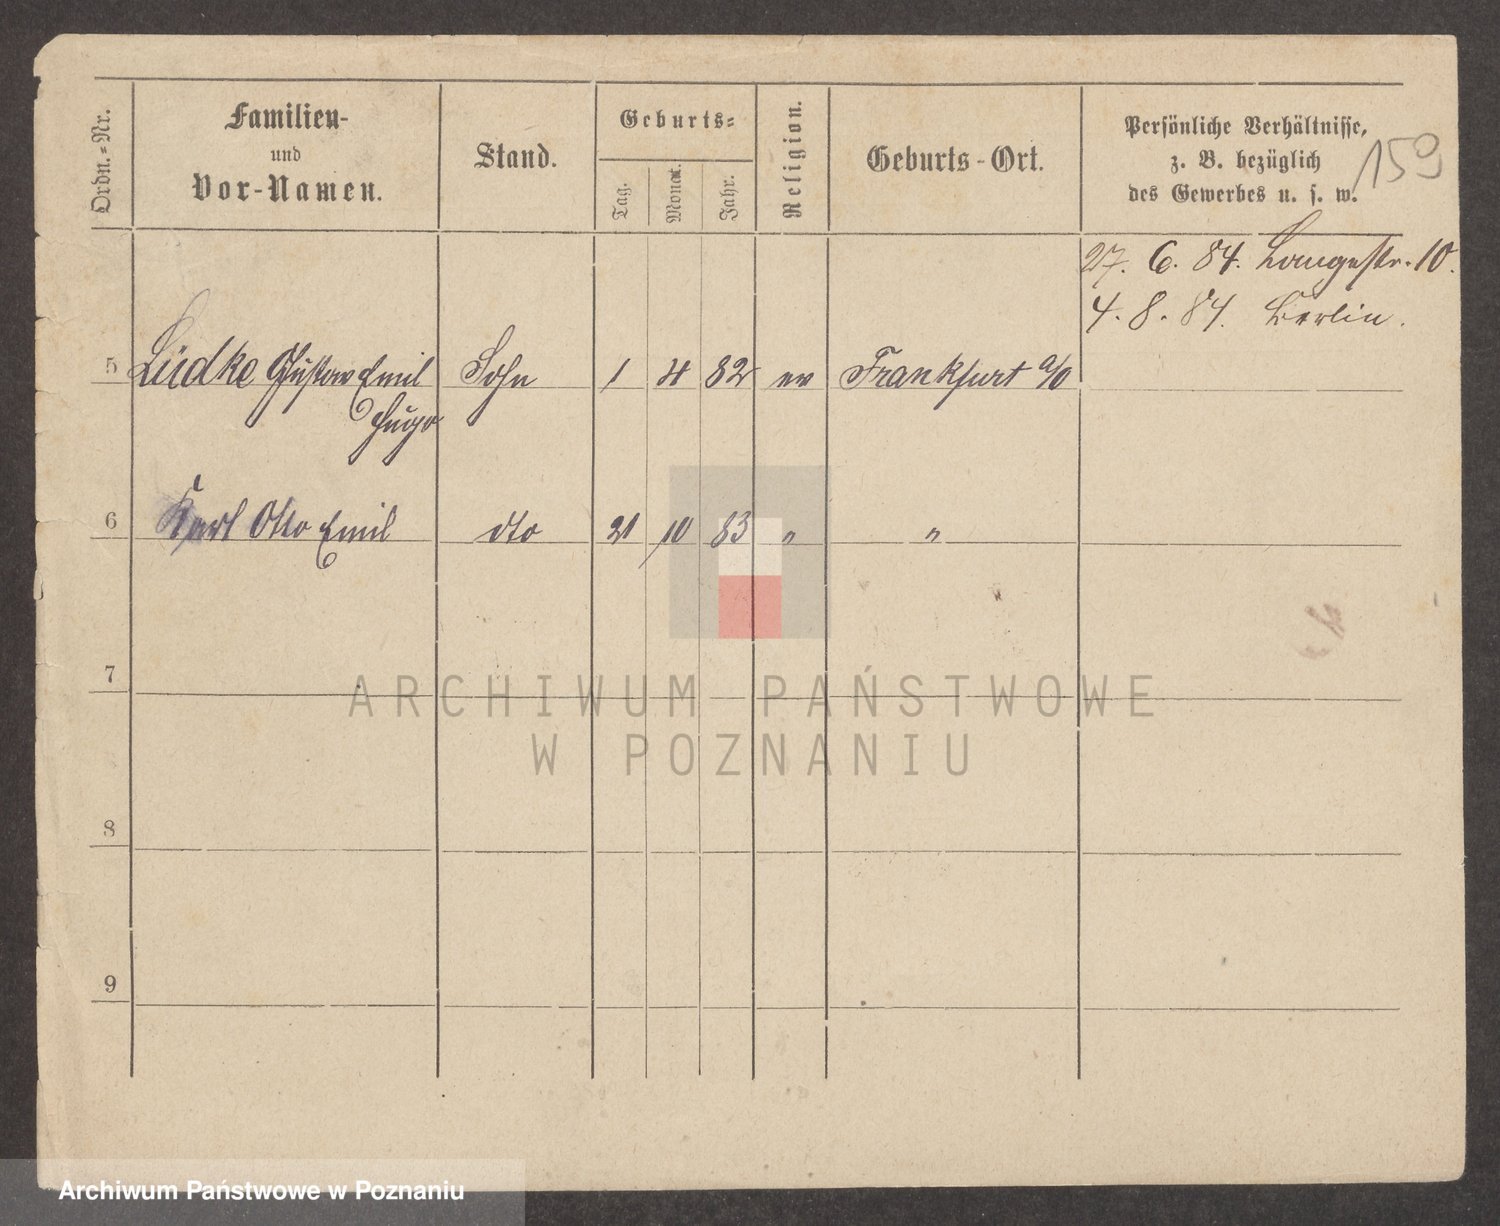 Ordn.-Nr.
Familien-
und
Vor-Namen.
Stand.
Geburts-
Tag.
Monat.
Jahr.
Religion.
Geburts-Ort.
Persönliche Verhältnisse,
z. B. bezüglich
des Gewerbes u. s. w.
159
27. 6. 84. Langestr. 10.
4. 8. 84. Berlin.
5 Lüdke Gustav Emil Sohn 1 4 82 ev Frankfurt a/O
Hugo
6 Karl Otto Emil dto 21 10 83 " "
7
8
9
ARCHIWUM PAŃSTWOWE
W POZNANIU
Archiwum Państwowe w Poznaniu